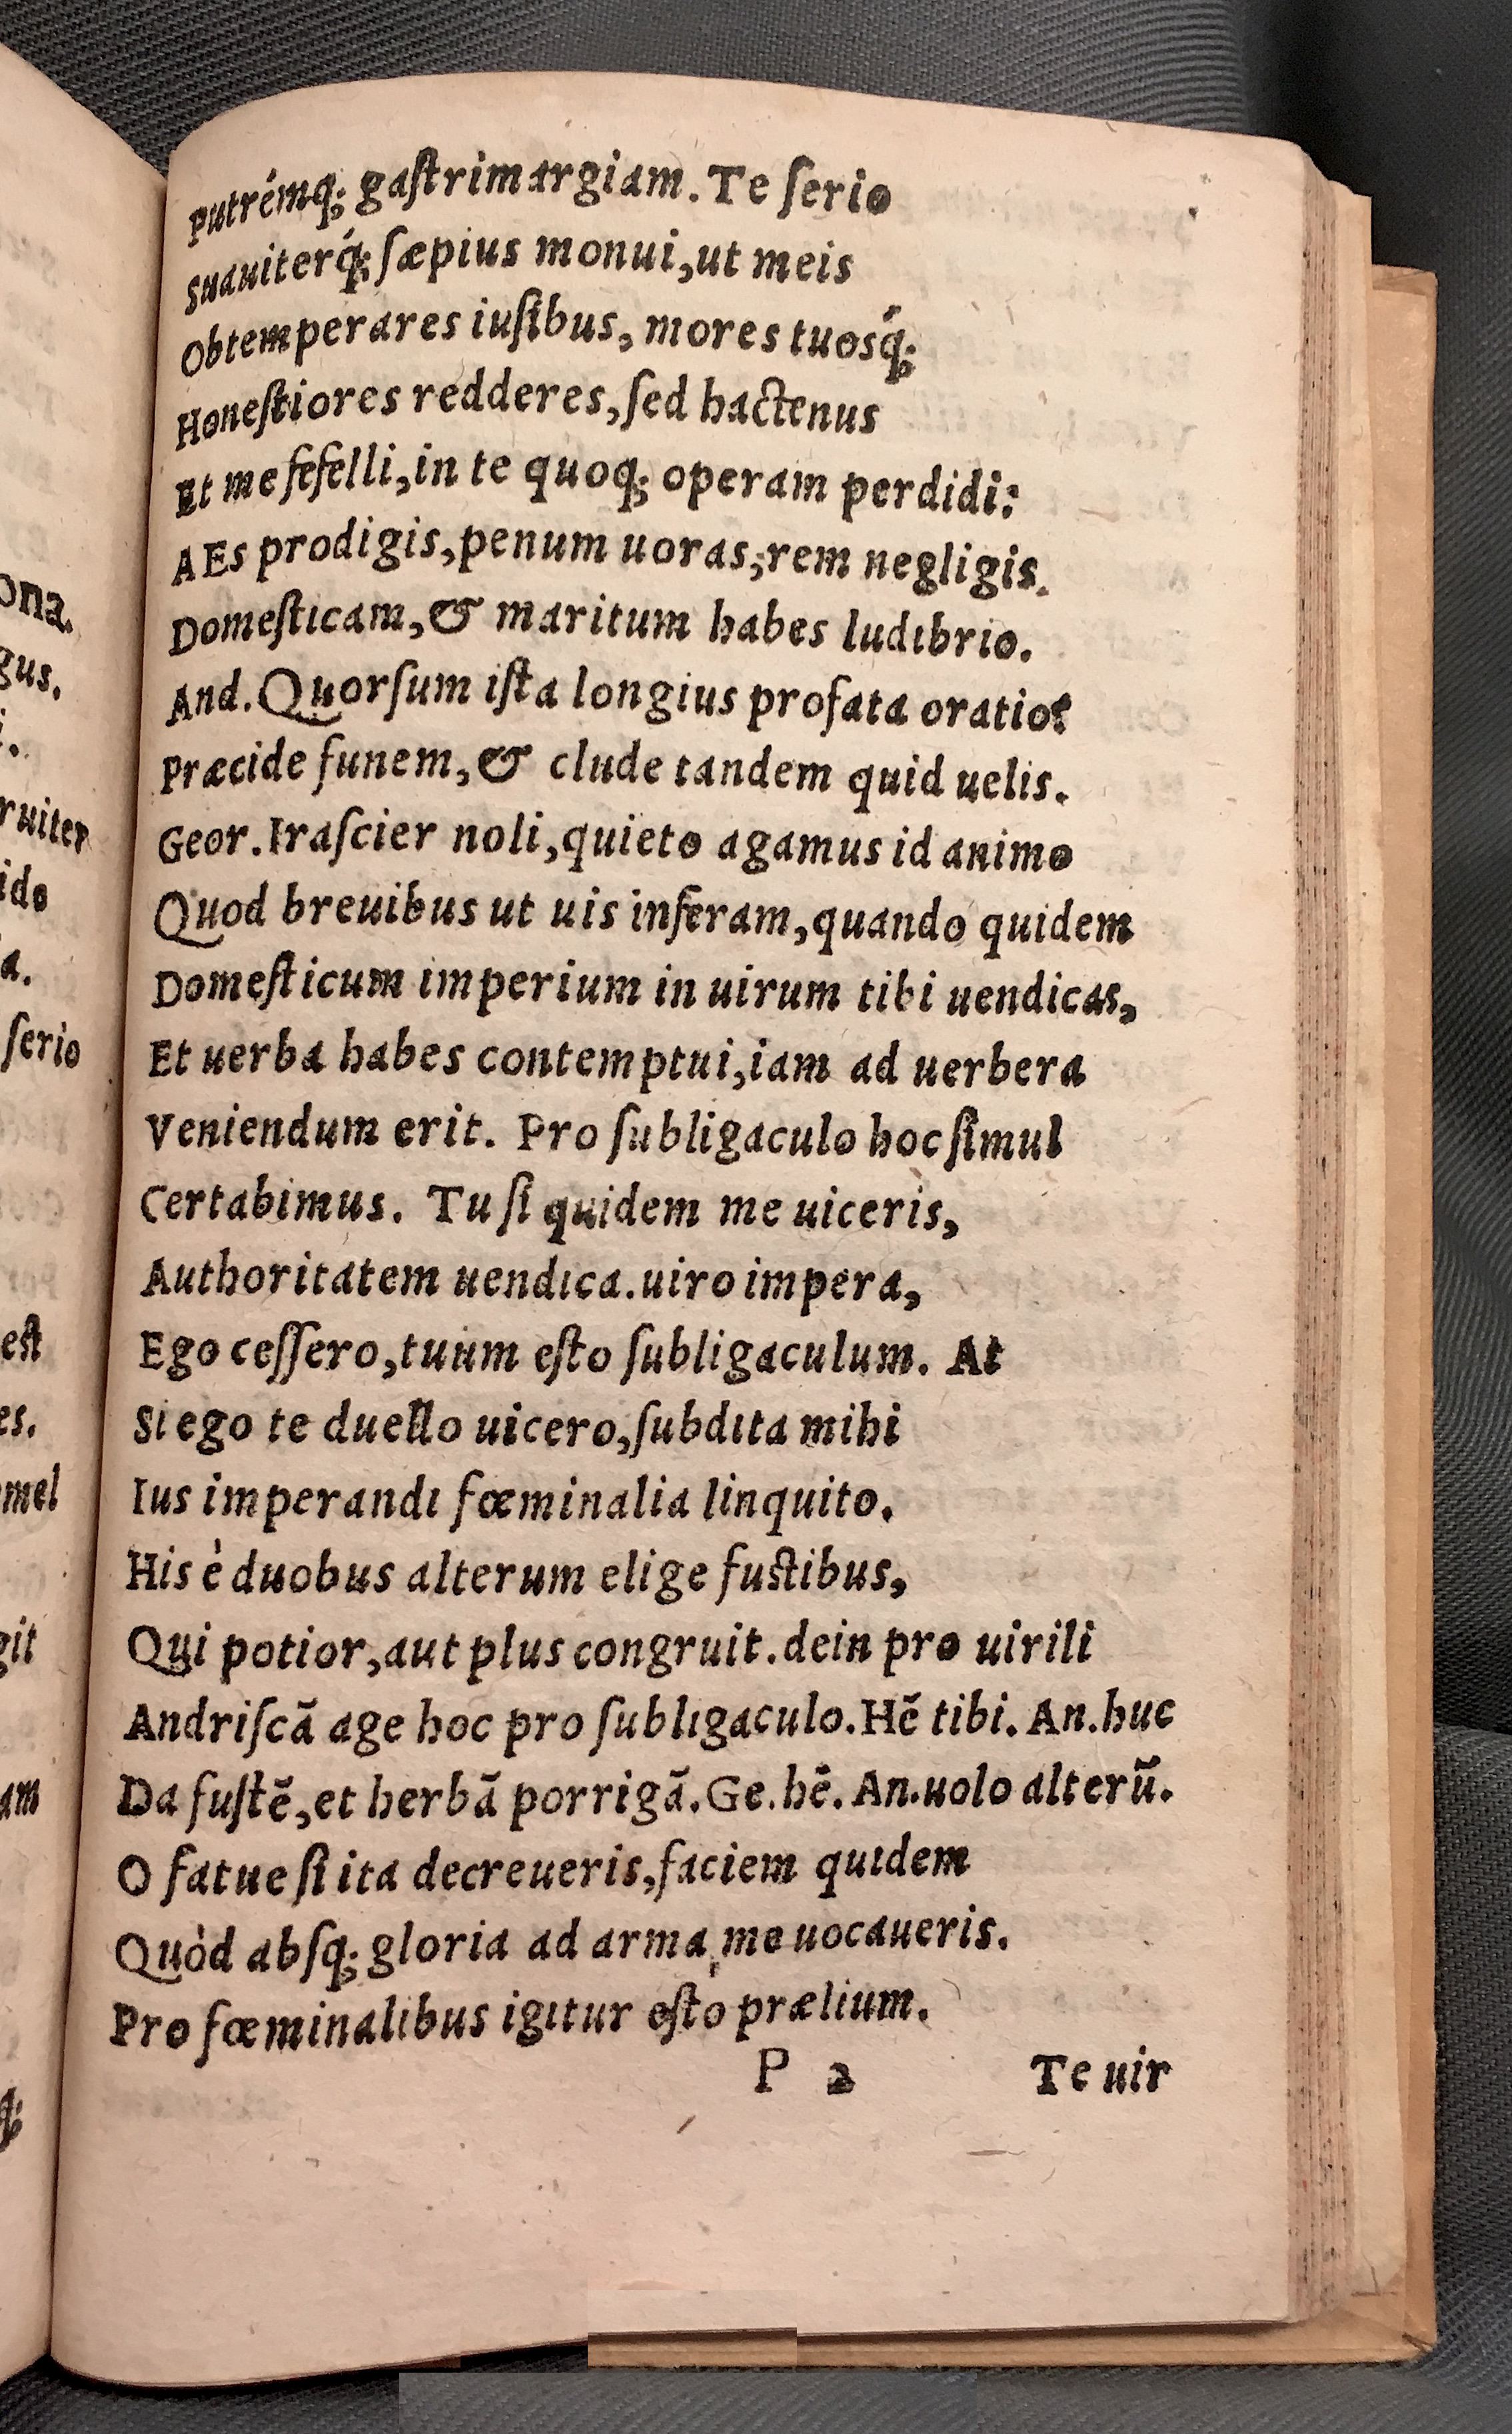 ona.
gus.
ruiter
ido
a.
ſerio
eſt
es.
mel
git
am
q́;
putrémq; gaſtrimargiam. Te ſerio
suauiterq́; ſæpius monui, ut meis
Obtemperares iuſibus, mores tuosq́;
Honeſtiores redderes, ſed hactenus
Et me fefelli, in te quoq; operam perdidi:
AEs prodigis, penum uoras, rem negligis.
Domeſticam, & maritum habes ludibrio.
And. Quorſum iſta longius profata oratio?
Præcide funem, & clude tandem quid uelis.
Geor. Iraſcier noli, quieto agamus id animo
Quod breuibus ut uis inferam, quando quidem
Domeſticum imperium in uirum tibi uendicas,
Et uerba habes contemptui, iam ad uerbera
Veniendum erit. Pro ſubligaculo hoc ſimul
Certabimus. Tu ſi quidem me uiceris,
Authoritatem uendica. uiro impera,
Ego ceſſero, tuum eſto ſubligaculum. At
Si ego te duello uicero, ſubdita mihi
Ius imperandi fœminalia linquito.
His è duobus alterum elige fuſtibus,
Qui potior, aut plus congruit. dein pro uirili
Andriſcā age hoc pro ſubligaculo. Hē tibi. An. huc
Da fuſtē, et herbā porrigā. Ge. hē. An. uolo alterū.
O fatue ſi ita decreueris, faciem quidem
Quòd abſq; gloria ad arma me uocaueris.
Pro fœminalibus igitur eſto prælium.
P 2 Te uir